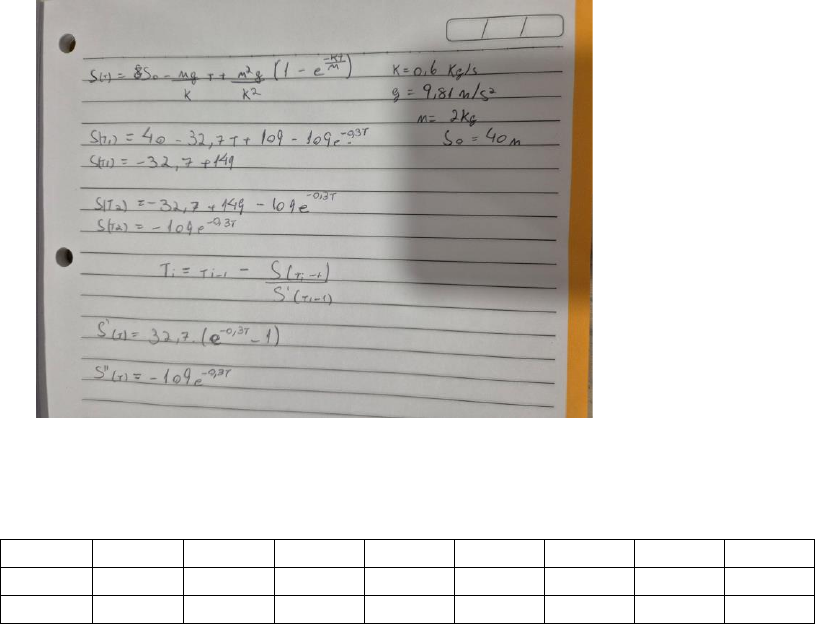 S(T) = S₀ - mg/K T + m²g/K² (1 - e^(-KT/M)) K = 0,6 Kg/s
g = 9,81 m/s²
m = 2Kg
S(T₁) = 40 - 32,7T + 109 - 109e^(-0,3T) S₀ = 40m
S(T₁) = -32,7 + 149
S(T₂) = -32,7 + 149 - 109e^(-0,3T)
S(T₂) = -109e^(-0,3T)
Ti = Ti-1 - S(Ti-1)/S'(Ti-1)
S'(T) = 32,7.(e^(-0,3T) - 1)
S''(T) = -109e^(-0,3T)